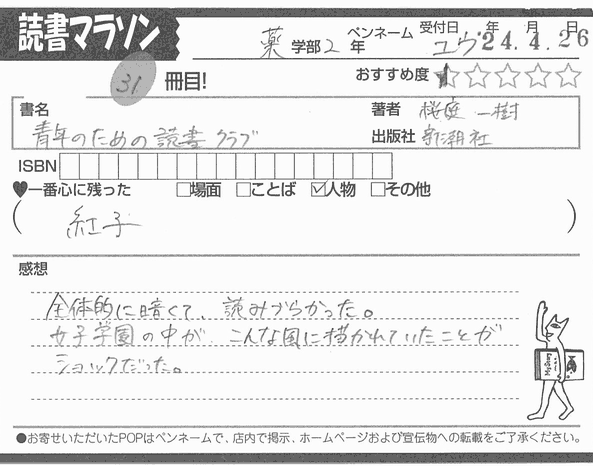 読書マラソン
薬 学部 2 年 ペンネーム ユウ 受付日 年 月 日 '24.4.26
31 冊目!
おすすめ度 ★☆☆☆☆
書名 青年のための読書クラブ
著者 桜庭 一樹
出版社 新潮社
ISBN
♥一番心に残った □場面 □ことば ☑人物 □その他
( 紅子 )
感想
全体的に暗くて、読みづらかった。
女子学園の中が、こんな風に描かれていたことが
ショックだった。
●お寄せいただいたPOPはペンネームで、店内で掲示、ホームページおよび宣伝物への転載をご了承ください。